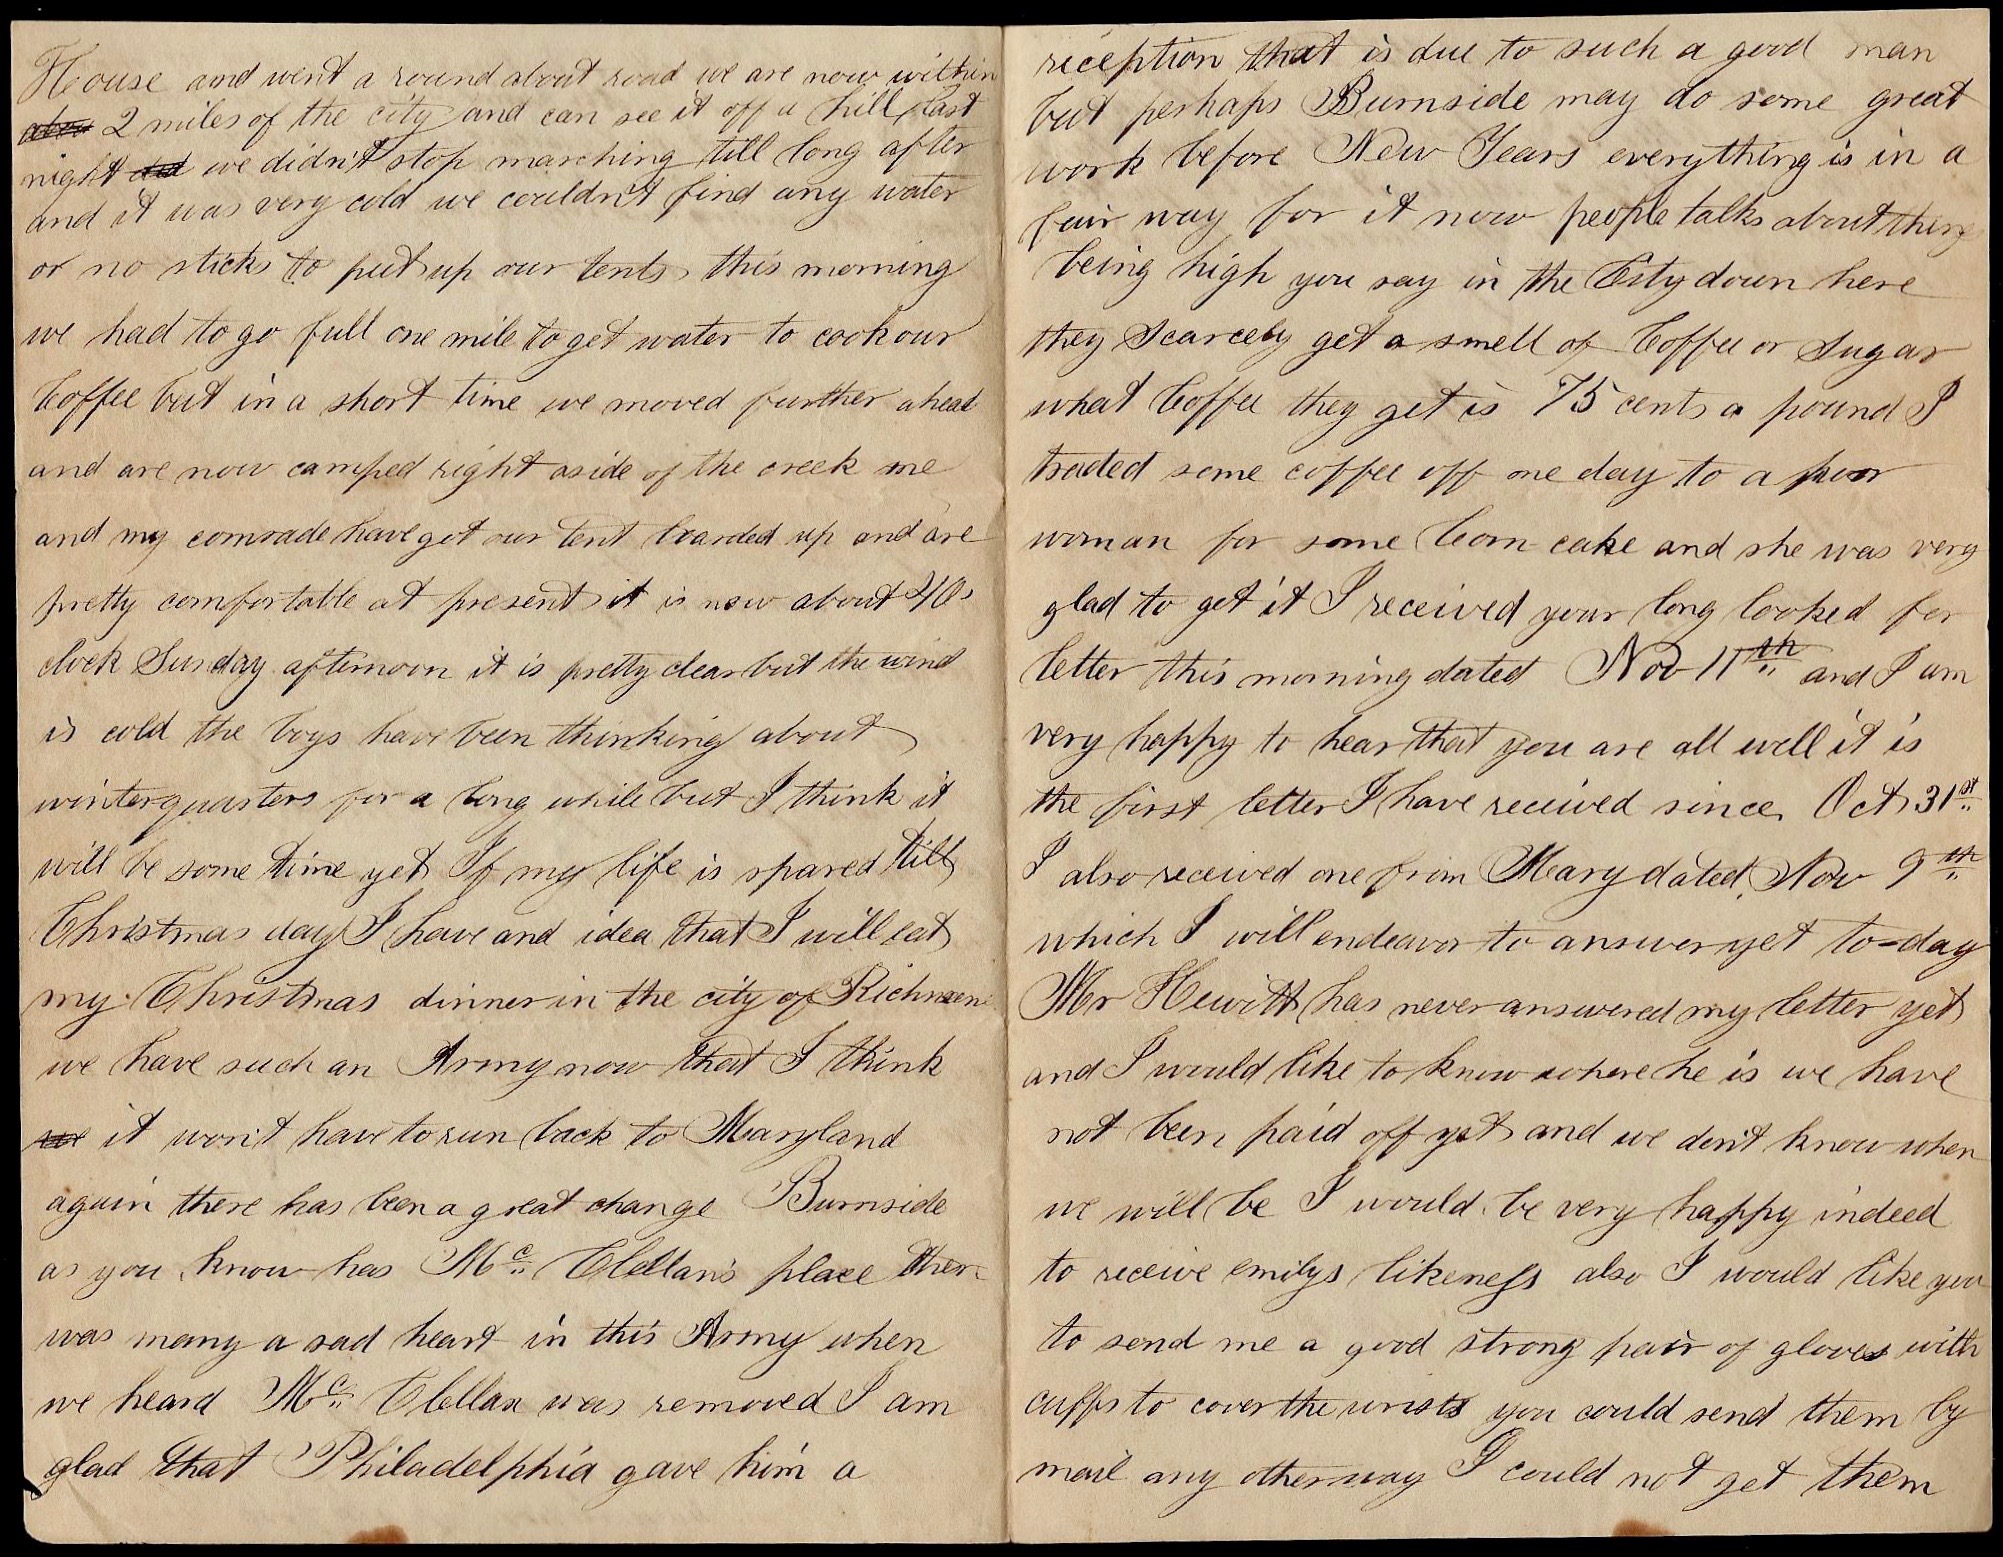 House and went a round about road we are now within
2 miles of the city and can see it off a hill last
night we didn't stop marching till long after
and it was very cold we couldn't find any water
or no sticks to put up our tents this morning
we had to go full one mile to get water to cook our
Coffee but in a short time we moved further ahead
and are now camped right aside of the creek me
and my comrade have got our tent boarded up and are
pretty comfortable at present it is now about 4 O'
clock Sunday afternoon it is pretty clear but the wind
is cold the boys have been thinking about
winterquarters for a long while but I think it
will be some time yet If my life is spared till
Christmas day I have and idea that I will eat
my Christmas dinner in the city of Richmon
we have such an Army now that I think
we it won't have to run back to Maryland
again there has been a great change Burnside
as you know has Mc Clellan's place ther
was many a sad heart in this Army when
we heard Mc Clellan was removed I am
glad that Philadelphia gave him a
reception that is due to such a good man
but perhaps Burnside may do some great
work before New Years everything is in a
fair way for it now people talks about thing
being high you say in the City down here
they scarcely get a smell of Coffee or Sugar
what Coffee they get is 75 cents a pound I
traded some coffee off one day to a poor
woman for some Corn cake and she was very
glad to get it I received your long looked for
letter this morning dated Nov 11th and I am
very happy to hear that you are all well it is
the first letter I have received since Oct 31st
I also received one from Mary dated Nov 9th
which I will endeavor to answer yet to-day
Mr Hewitt has never answered my letter yet
and I would like to know where he is we have
not been paid off yet and we don't know when
we will be I would be very happy indeed
to receive emilys likeness also I would like you
to send me a good strong pair of gloves with
cuffs to cover the wrists you could send them by
mail any other way I could not get them